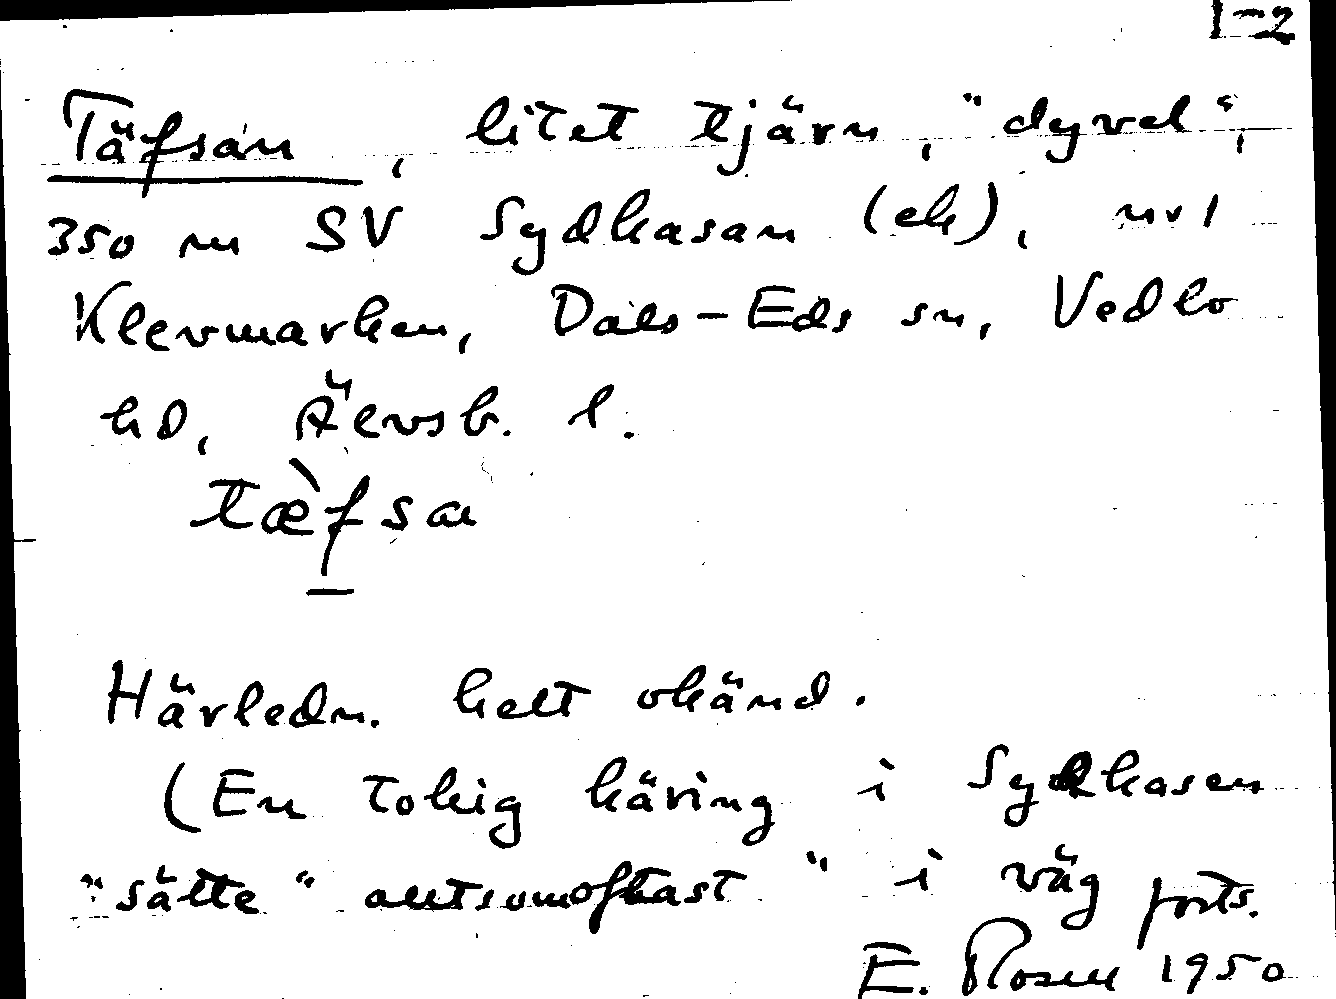 1-2
Täfsan, litet tjärn, "dyvel",
350 m SV Sydkasan (ek), nv 1
Klevmarken, Dals-Eds sn, Vedbo
hd, Älvsb. l.
tæ̀fsa
Härledn. helt okänd.
(En tokig käring i Sydkasen
"sätte" alltsomoftast "i väg forts.
E. Rosell 1950